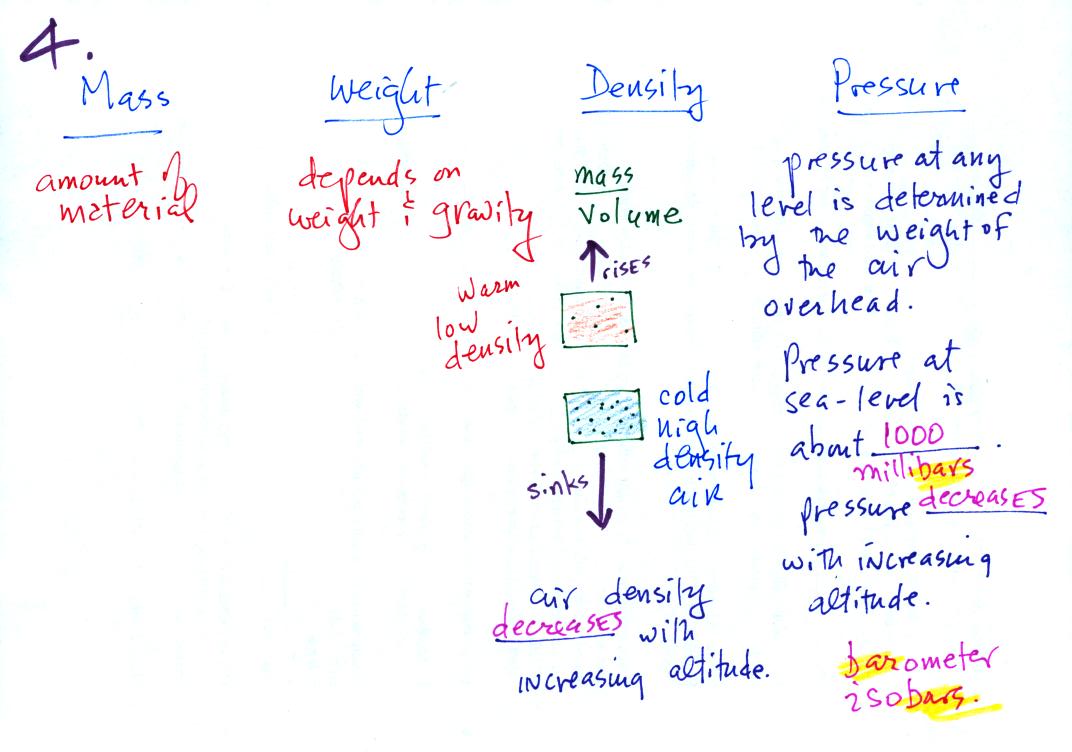 4.
Mass
amount of
material
Weight
depends on
weight & gravity
Density
mass
Volume
rises
Warm
low
density
cold
high
density
air
sinks
air density
decreases with
increasing altitude.
Pressure
pressure at any
level is determined
by the weight of
the air
overhead.
Pressure at
sea-level is
about 1000.
millibars
pressure decreases
with increasing
altitude.
barometer
isobars.